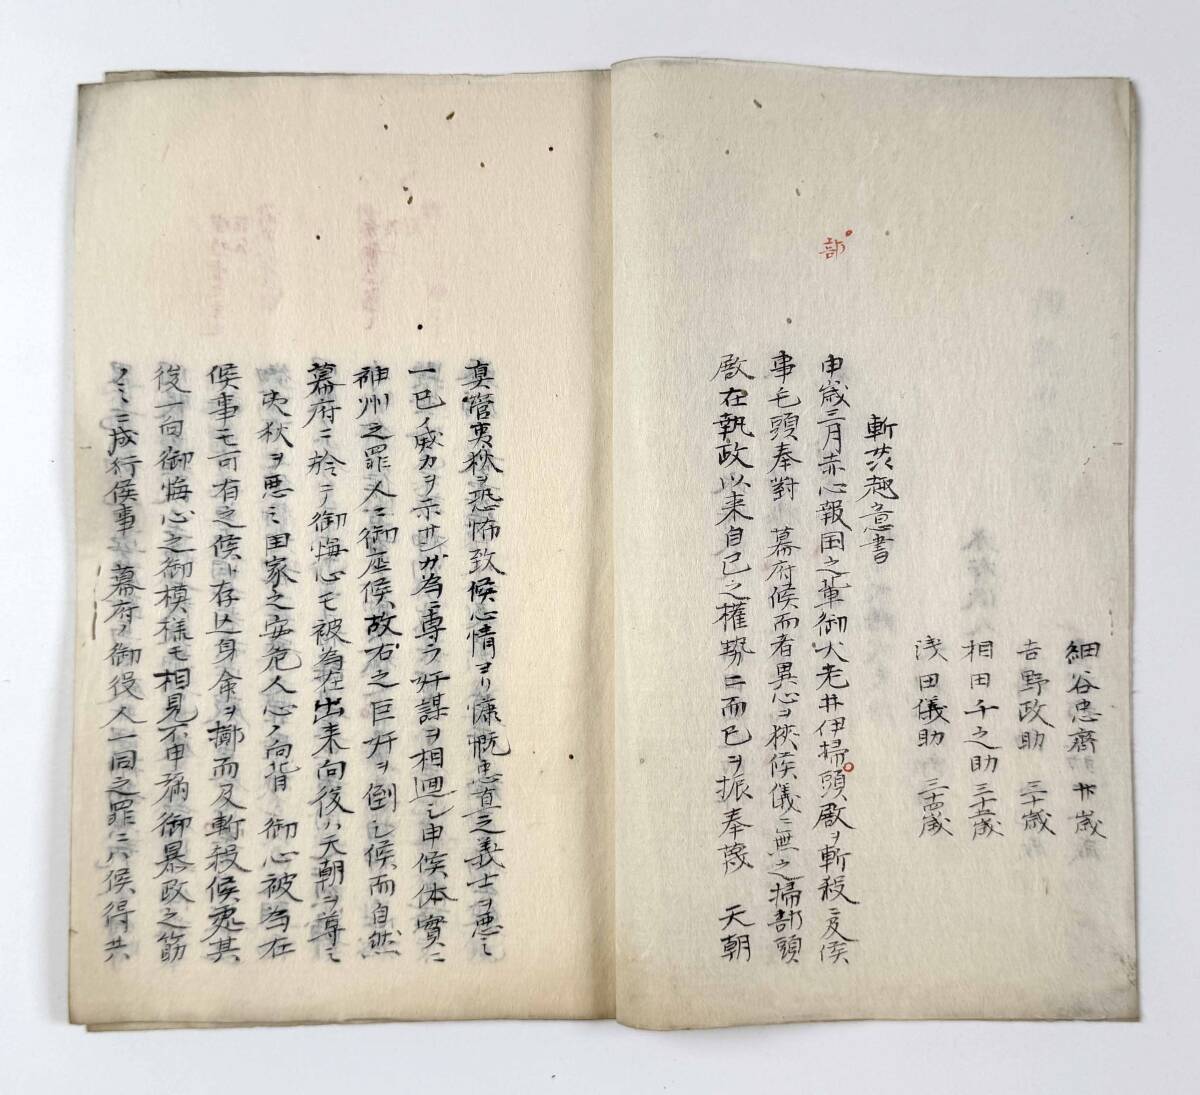 細谷忠齋 廿歳
吉野政助 三十歳
相田千之助 三十五歳
浅田儀助 三十四歳
斬奸趣意書
申歳三月赤心報国之輩御大老井伊掃頭殿ヲ斬殺ニ及候
部
事毛頭奉對 幕府候而者異心ヲ狹候儀ニ無之掃部頭
殿在執政以来自己之權勢ニ而已ヲ振奉蔑 天朝
真管夷狄ヲ恐怖致候心情ヨリ慷慨忠直之義士ヲ悪ミ
一已ノ威力ヲ示サンガ為ニ専ラ奸謀ヲ相廻シ申候体實ニ
神州之罪人ニ御座候故右之巨奸ヲ倒シ候而自然
幕府ニ於テ御悔心モ被為在出来向後ハ天朝ヲ尊ミ
夷狄ヲ悪ミ国家之安危人心ノ向背 御心被為在
候事モ可有之候ト存込身命ヲ擲而及斬殺候処其
後一向御悔心之御模様モ相見不申弥御暴政之筋
ノミニ成行候事 幕府ノ御役人一同之罪ニハ候得共